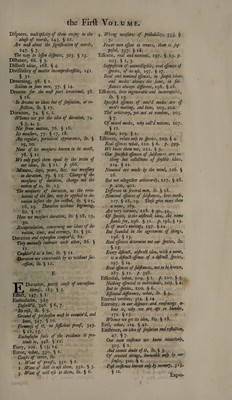 the First VOLUME.
Disputes, multiplicity of them owing to the
abuse of words, 247. § 22.
Are most about the signification of words,
247. § 7.
The way to lessen disputes, 303. § 13.
Distance, 66.
Distinct ideas, 168. § 4.
Divisibility of matter incomprehensible, 141.
§ 31.
Dreaming, 98. § 1.
Seldom in some men, 37. § 14.
Dreams for the most part irrational, 38.
§ 16.
In dreams no ideas but of sensation, or re-
flection, ib. § 17.
Duration, 74. § 1, 2.
Whence we get the idea of duration, 74.
§ 3, 4, 5.
Not from motion, 76. § 16.
Its measure, 77. § 17, 18.
Any regular, periodical appearance, ib. §
19, 20.
None of its measures known to be exact,
78. § 21.
We only guess them equal by the train of
our ideas, ib. § 21. p. 366.
Minutes, days, years, &c. not necessary
to duration, 79. § 23. Change of the
measures of duration, change not the
notion of it, ib. 23.
The measures of duration, as the revo-
lutions of the sun, may be applied to du-
ration before the sun existed, ib. § 24,
28, 29. Duration without beginning,
ib. § 27.
How we measure duration, ib. § 28, 29,
30.
Recapitulation, concerning our ideas of du-
ration, time, and eternity, 81. § 32.
Duration and expansion compared, 82.
They mutually embrace each other, 86. §
12.
Consider'd as a line, ib. § 11.
Duration not conceivable by us without suc-
cession, ib. § 12.
E.
Education, partly cause of unreason-
ableness, 183. § 3.
Effect, 147. § 1.
Enthusiasm, 329.
Described, 330. § 6, 7.
Its rise, ib. § 5.
Ground of persuasion must be examin'd, and
how, 331. § 10.
Firmness of it, no sufficient proof, 332.
§ 12, 13.
Fails of the evidence it pre-
tends to, 331. § 11.
Envy, 100. § 13, 14.
Error, what, 330. § 1.
Causes of error, ib.
1. Want of proofs, 331. § 2.
2. Want of skill to use them, 332. § 5.
3. Want of will to use them, ib. § 6.
4. Wrong measures of probability, 333. §
7.
Fewer men assent to errours, than is sup-
posed, 337. § 18.
Essence, real and nominal, 191. § 15. p.
205. § 1, 2.
Supposition of unintelligible, real essences of
species, of no use, 192. § 17.
Real and nominal essences, in simple ideas,
and modes always the same, in sub-
stances always different, 192. § 18.
Essences, how ingenerable and incorruptible,
ib. § 19.
Specifick essences of mix'd modes are of
men's making, and how, 205, 206.
Tho' arbitrary, yet not at random, 207.
§ 7.
Of mixed modes, why call'd notions, 207.
§ 12.
What, 209. § 2.
Relate only to species, 209. § 4.
Real essence what, 210. § 6. p. 399.
We know them not, 211. § 9.
Our specifick essences of substances are no-
thing but collections of sensible ideas,
214. § 21.
Nominal are made by the mind, 216. §
26.
But not altogether arbitrarily, 217. § 28.
p. 401, 402.
Different in several men, ib. § 28.
Nominal essences of substances, how made,
217. § 28, 29. They give many times
a name, 169.
are very various, 218. § 30, 31.
Of species, is the abstract idea, the name
stands for, 196. § 12. p. 198. § 19.
Is of man's making, 197. § 12.
But founded in the agreement of things,
198. § 13.
Real essences determine not our species, ib.
§ 13.
Every distinct, abstract idea, with a name,
is a distinct essence of a distinct species,
197. § 14.
Real essences of substances, not to be known,
287. § 12. p. 398.
Essential, what, 209. § 2. p. 210. § 5.
Nothing essential to individuals, 209. § 4.
but to species, 210. § 6.
Essential difference, what, ib. § 5.
Eternal verities, 312. § 14.
Eternity, in our disputes and reasonings a-
bout it, why we are apt to blunder,
170. § 15.
Whence we get its idea, 80. § 27.
Evil, what, 114. § 42.
Existence, an idea of sensation and reflection,
47. § 7.
Our own existence we know intuitively,
305. § 2.
And cannot doubt of it, ib. § 3.
Of created things, knowable only by our
senses, 310. § 1.
Past existence known only by memory, 313.
§ 11.
Expan-